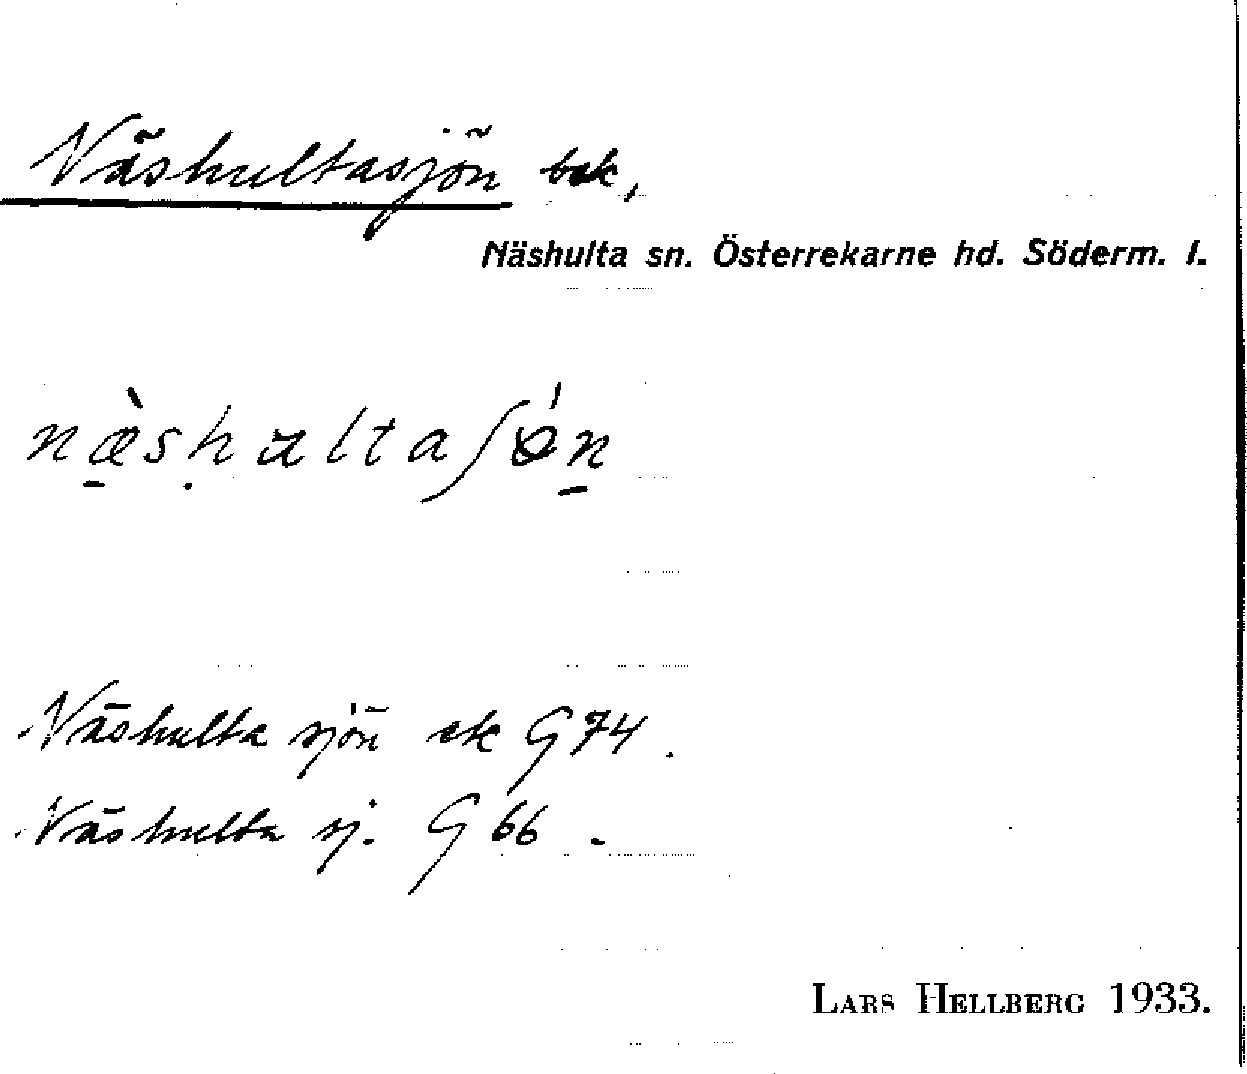 Näshultasjön bek,
Näshulta sn. Österrekarne hd. Söderm. l.
næ̀shultaʃǿn
Näshulta sjön ek G 74.
Näshulta sj. G 66 -
LARS HELLBERG 1933.